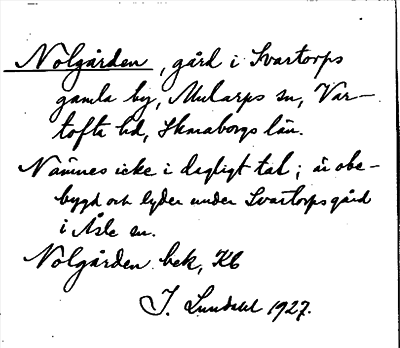 Nolgården, gård i Svartorps
gamla by, Mularps sn, Var-
tofta hd, Skaraborgs län.
Nämnes icke i dagligt tal; är obe-
bygd och lyder under Svartorps gård
i Åsle sn.
Nolgården bek, Kb
J. Lundahl 1927.